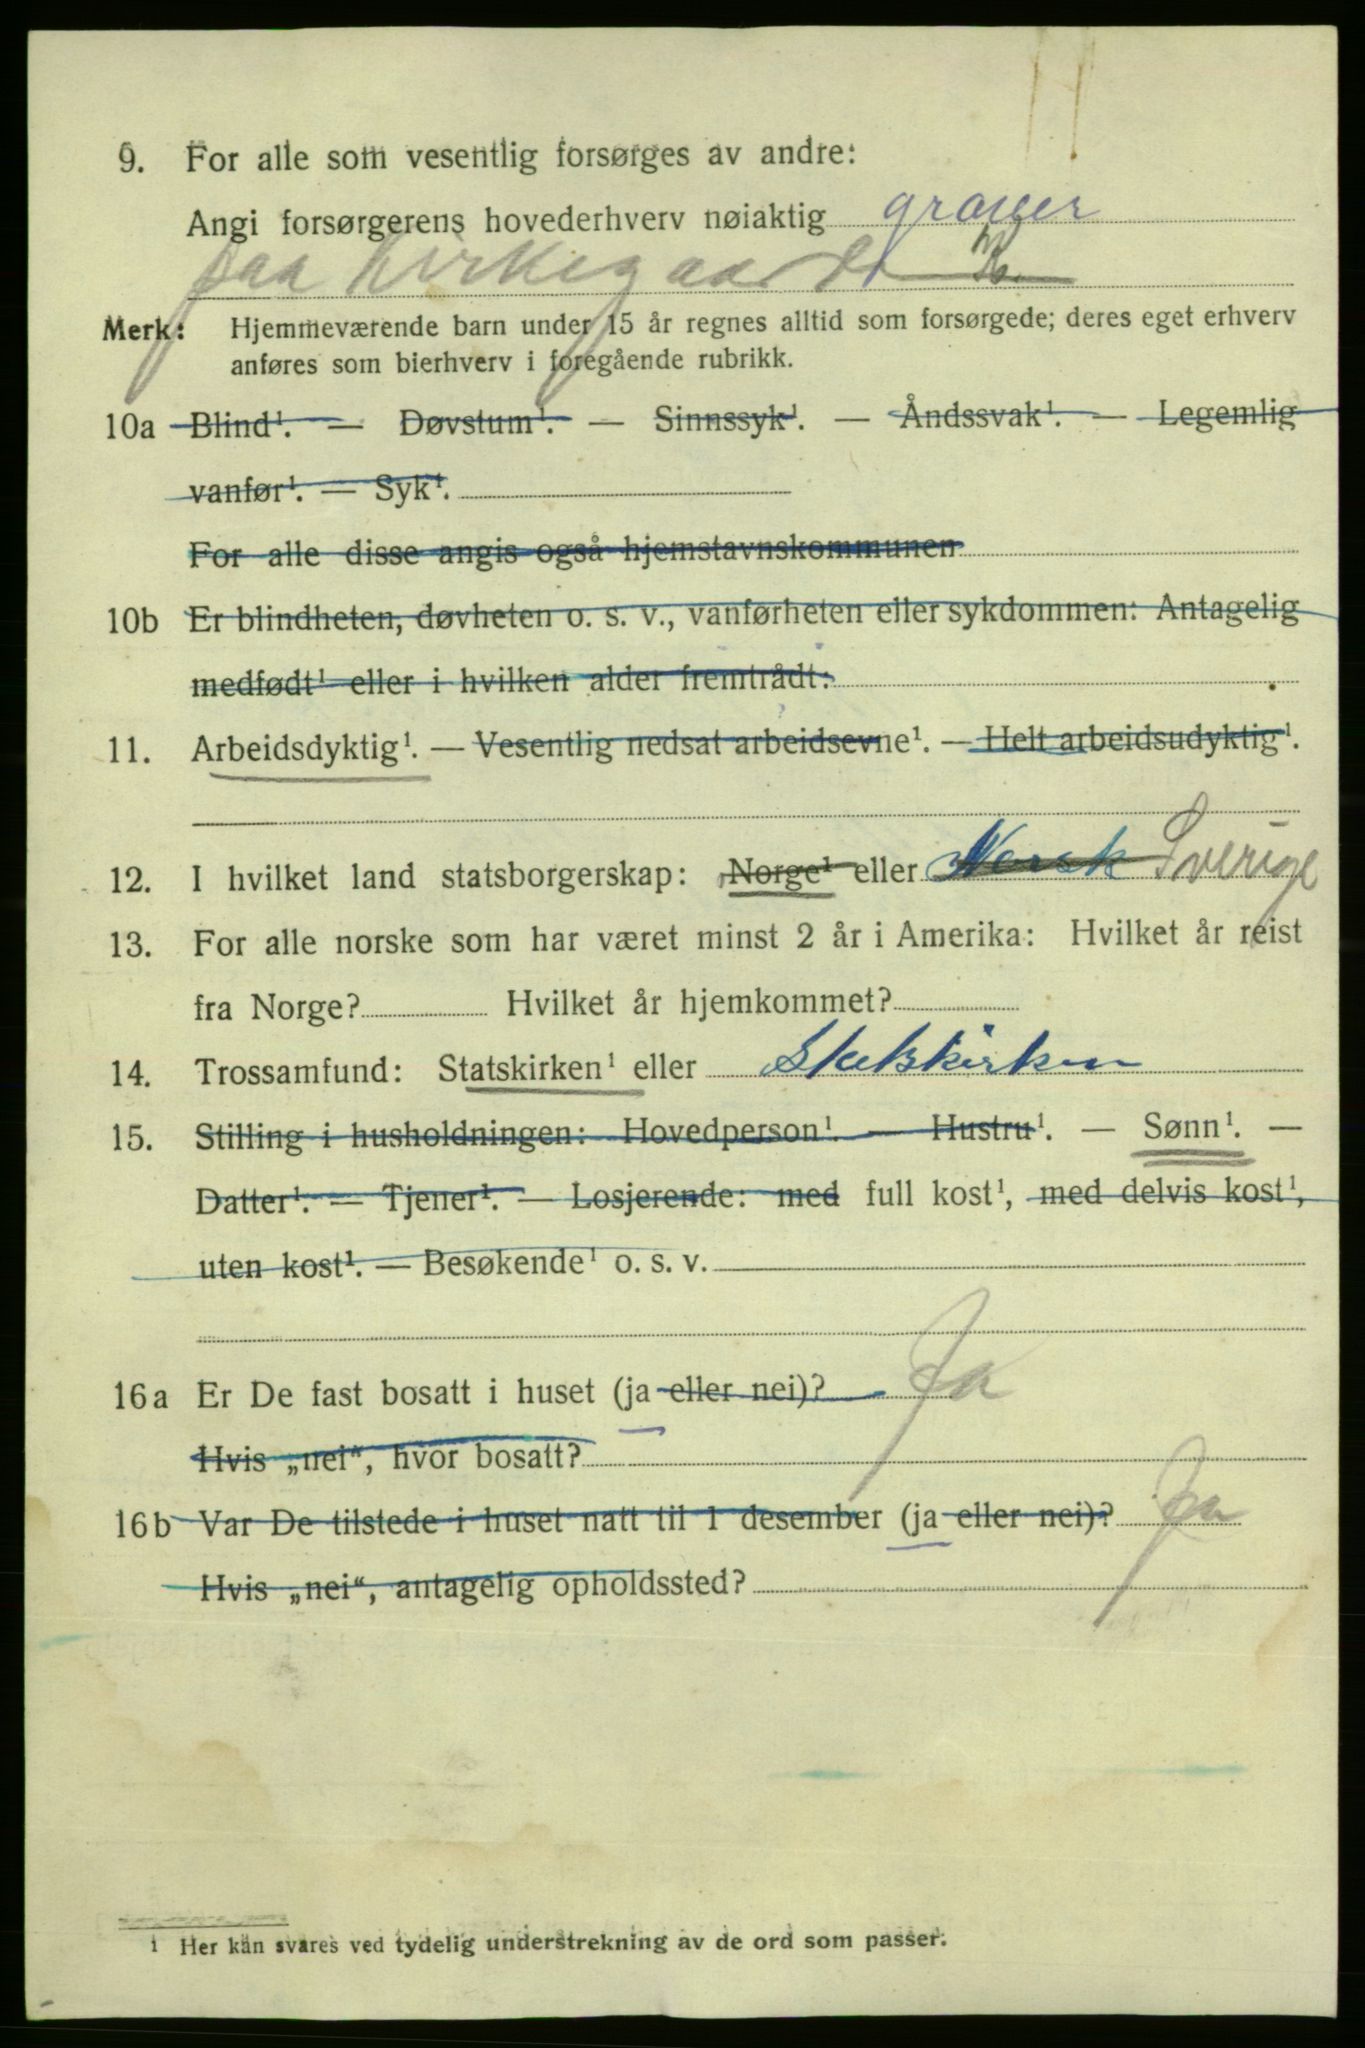 9. For alle som vesentlig forsørges av andre:
Angi forsørgerens hovederhverv nøiaktig graver
paa Kirkegaard
Merk: Hjemmeværende barn under 15 år regnes alltid som forsørgede; deres eget erhverv
anføres som bierhverv i foregående rubrikk.
10a Blind¹. — Døvstum¹. — Sinnssyk¹. — Åndssvak¹. — Legemlig
vanfør¹. — Syk¹.
For alle disse angis også hjemstavnskommunen
10b Er blindheten, døvheten o. s. v., vanførheten eller sykdommen: Antagelig
medfødt¹ eller i hvilken alder fremtrådt:
11. Arbeidsdyktig¹. — Vesentlig nedsat arbeidsevne¹. — Helt arbeidsudyktig¹.
12. I hvilket land statsborgerskap: Norge¹ eller Norsk Sverige
13. For alle norske som har været minst 2 år i Amerika: Hvilket år reist
fra Norge? Hvilket år hjemkommet?
14. Trossamfund: Statskirken¹ eller Statskirken
15. Stilling i husholdningen: Hovedperson¹. — Hustru¹. — Sønn¹. —
Datter¹. — Tjener¹. — Losjerende: med full kost¹, med delvis kost¹,
uten kost¹. — Besøkende¹ o. s. v.
16a Er De fast bosatt i huset (ja eller nei)? Ja
Hvis „nei“, hvor bosatt?
16b Var De tilstede i huset natt til 1 desember (ja eller nei)? Ja
Hvis „nei“, antagelig opholdssted?
¹ Her kan svares ved tydelig understrekning av de ord som passer.